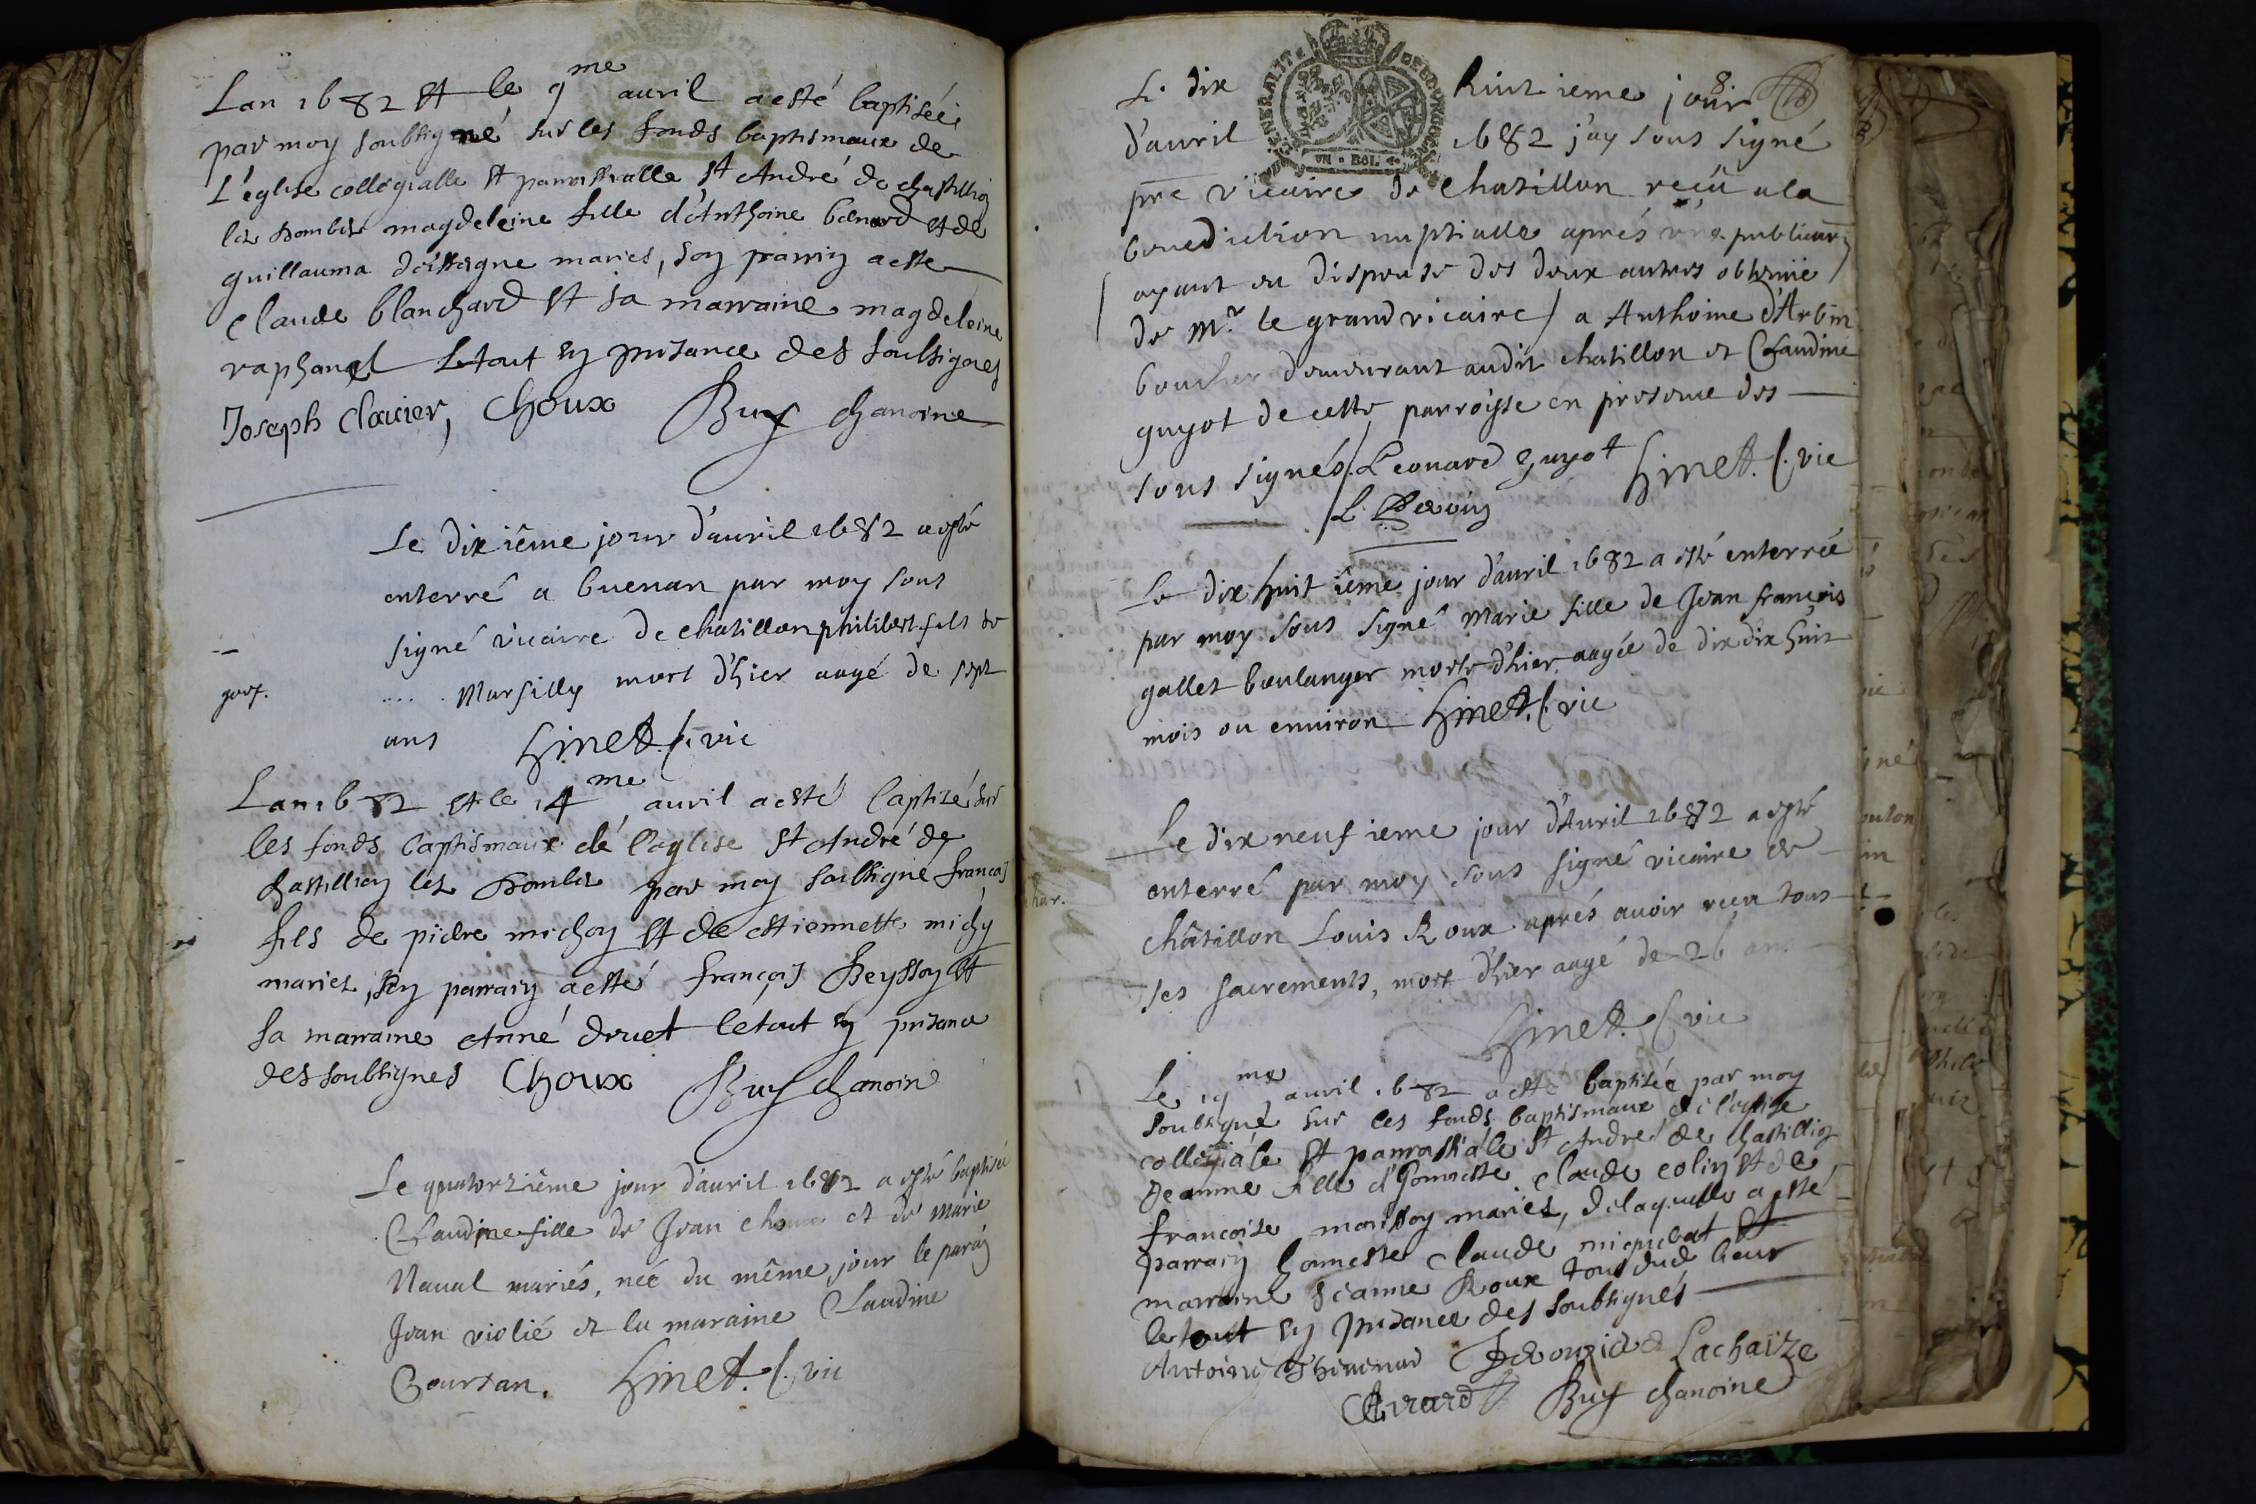 Lan 1682 et le 9me auril a esté baptisée
par moy soubsigné sur les fonds baptismaux de
L'eglise collegialle et parrossialle st André de chastillion
les Dombes magdeleine fille d'Anthoine benard et de
guillauma mariés, son parrin a esté
Claude blanchard et sa marraine magdeleine
raphanel le tout en presance des soubsignes
Joseph Clauier, Choux Buy chanoine
Le dixiême jour d'auril 1682 a esté
enterré a buenan par moy sous
signé vicaire de chatillon philibert fils de
.... Marsilly mort d'hier aagé de sept
ans Hinet. vic
Lan 1682 et le 14me auril a esté baptizé sur
les fonds baptismaux de l'eglise st André de
chastillion les Dombes par moy soubsigné François
fils de pierre michon et de estiennette michy
mariez, son parrain a esté françois et
sa marraine Anne druet le tout en presance
des soubsignes Choux Buy chanoin
Le quatorziême jour d'auril 1682 a esté baptisée
Claudine fille de Jean choux et de Marie
Naual mariés, neé du même jour le parain
Jean violié et la maraine Claudine
Gourjan. Hinet. vic
GENERALITE DE BOURGOGNE
VN SOL 4
Le dix huit ieme jour
8
d'auril 1682 j'ay sous signé
pre vicaire de chatillon reçû a la
benediction nuptialle aprés vne publication
(ayant eu dispense des deux autres obtenüe
de Mr le grand vicaire) a Anthoine d'Arbin
boucher demeurant audit chatillon et Claudine
guyot de cette parroisse en presence des
sous signés. Leonard guyot Hinet. vic
Le dix huit ieme jour d'auril 1682 a esté enterrée
par moy sous signé Marie fille de Jean françois
gallet boulanger morte d'hier aagée de dix dix huit
mois ou enuiron Hinet. vic
Le dix neuf ieme jour d'Auril 1682 a esté
enterré par moy sous signé vicaire de
châtillon Louis Roux aprés auoir receu tous
ses sacrements, mort d'hier aagé de 26 ans
Hinet. vic
Le 19me auril 1682 a esté baptisée par moy
soubsigné sur les fonds baptismaux de l'eglise
collegiale et parrossiale st André de chastillion
Jeanne fille d'honneste Claude colin et de
francoise mariez, de laquelle a esté
parrain honneste Claude et
marraine Jeanne Roux tous dud lieux
le tout en presance des soubsignés
Antoine Lachaize
Buy chanoine